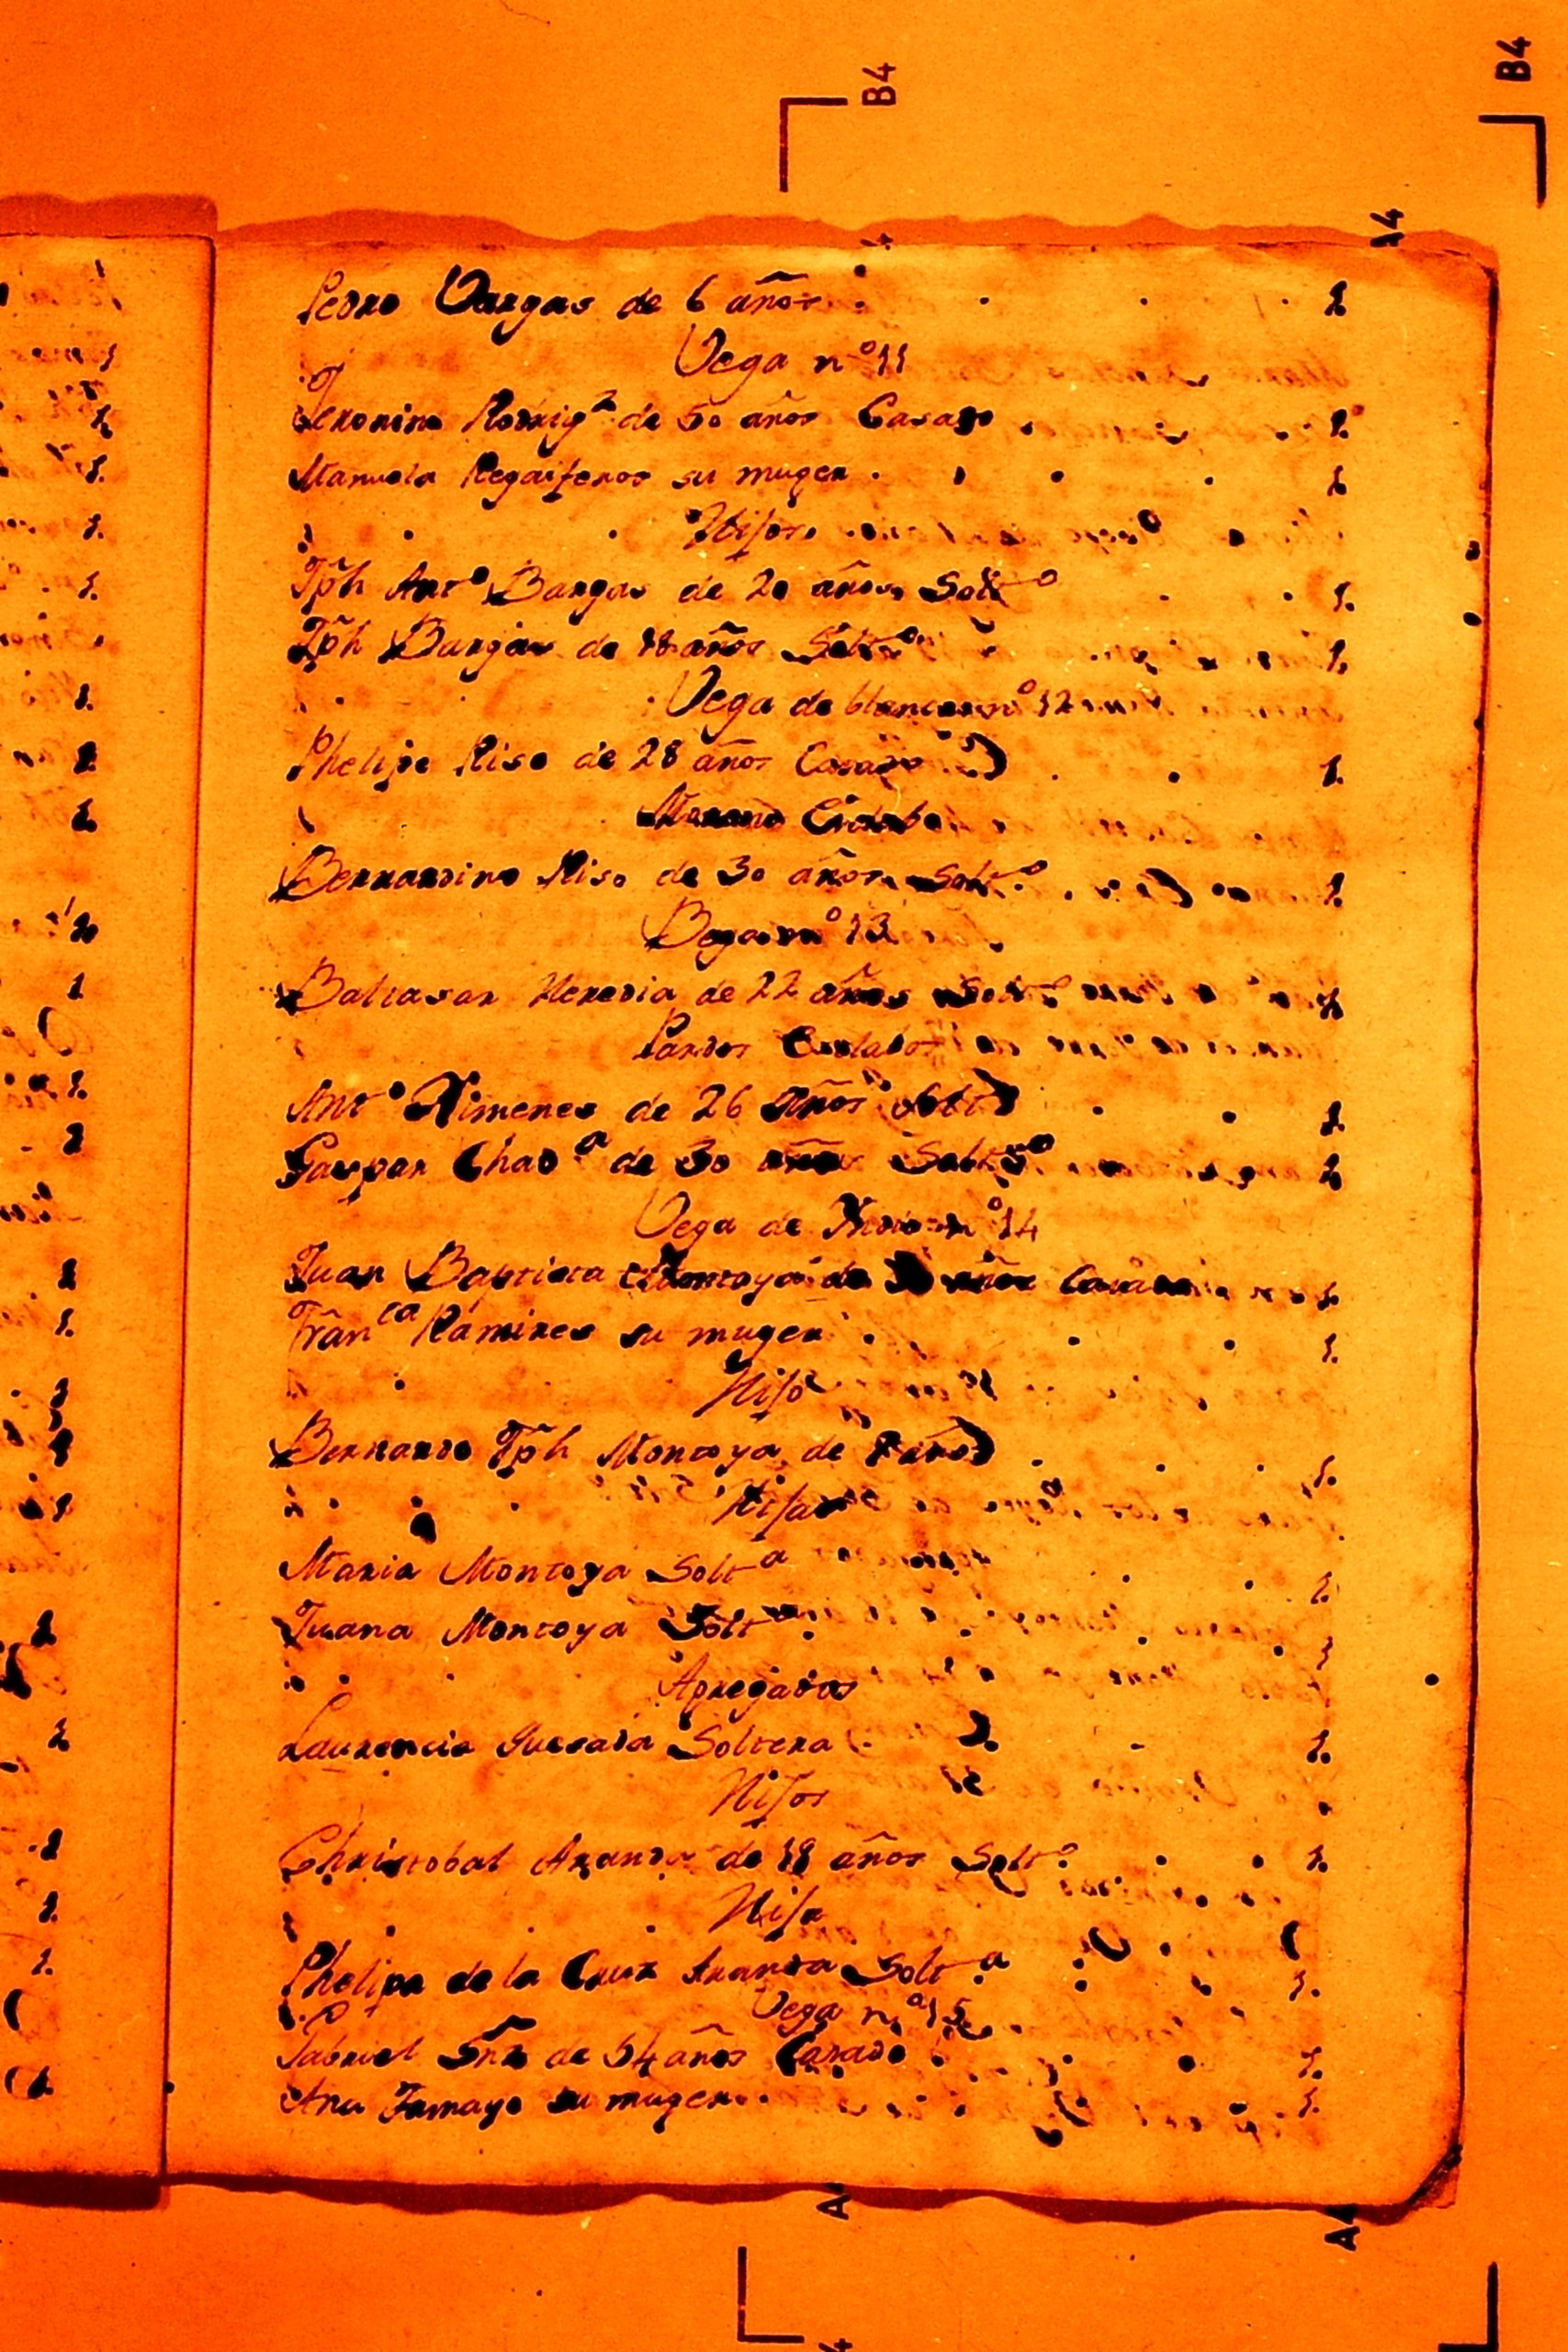 B4
B4
A4
Pedro Vargas de 6 años 1
Vega nº 11
Jeronimo Rodrigz de 50 años Casado 1.
Manuela Regaiferos su muger 1
Hijos
Jph Antº Bargas de 20 años Soltº 1.
Jph Bargas de 18 años Soltº 1.
Vega de blancos nº 12
Phelipe Riso de 28 años Casado 1.
Moreno Esclabo
Bernardino Riso de 30 años Soltº 1.
Bega nº 13
Baltasar Heredia de 22 años Soltº 1
Pardos Esclabos
Antº Ximenes de 26 años Soltº 1.
Gaspar de 30 años Soltº 1
Vega de Yndios nº 14
Juan Baptista Montoya de años Casado 1
Franca Ramires su muger 1.
Hijo
Bernardo Jph Montoya de años 1.
Hijas
Maria Montoya Solta 1.
Juana Montoya Solta 1
Agregados
Laurencia Quesada Soltera 1.
Hijos
Christobal Aranda de 18 años Soltº 1.
Hija
Phelipa de la Cruz Aranda Solta 1.
Vega nº 15
Gabriel de 54 años Casado 1.
Ana Tamayo su muger 1.
A4